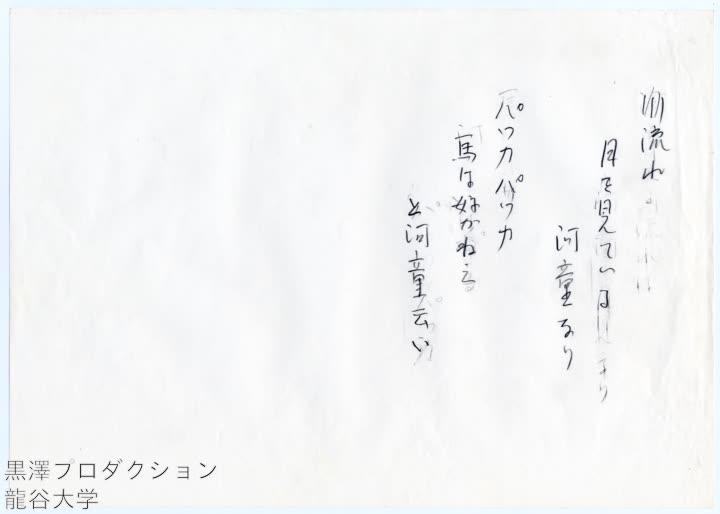 潮流れ
月を見ている
河童なり
パツカパツカ
馬は好かねえ
と河童云い
黒澤プロダクション
龍谷大学